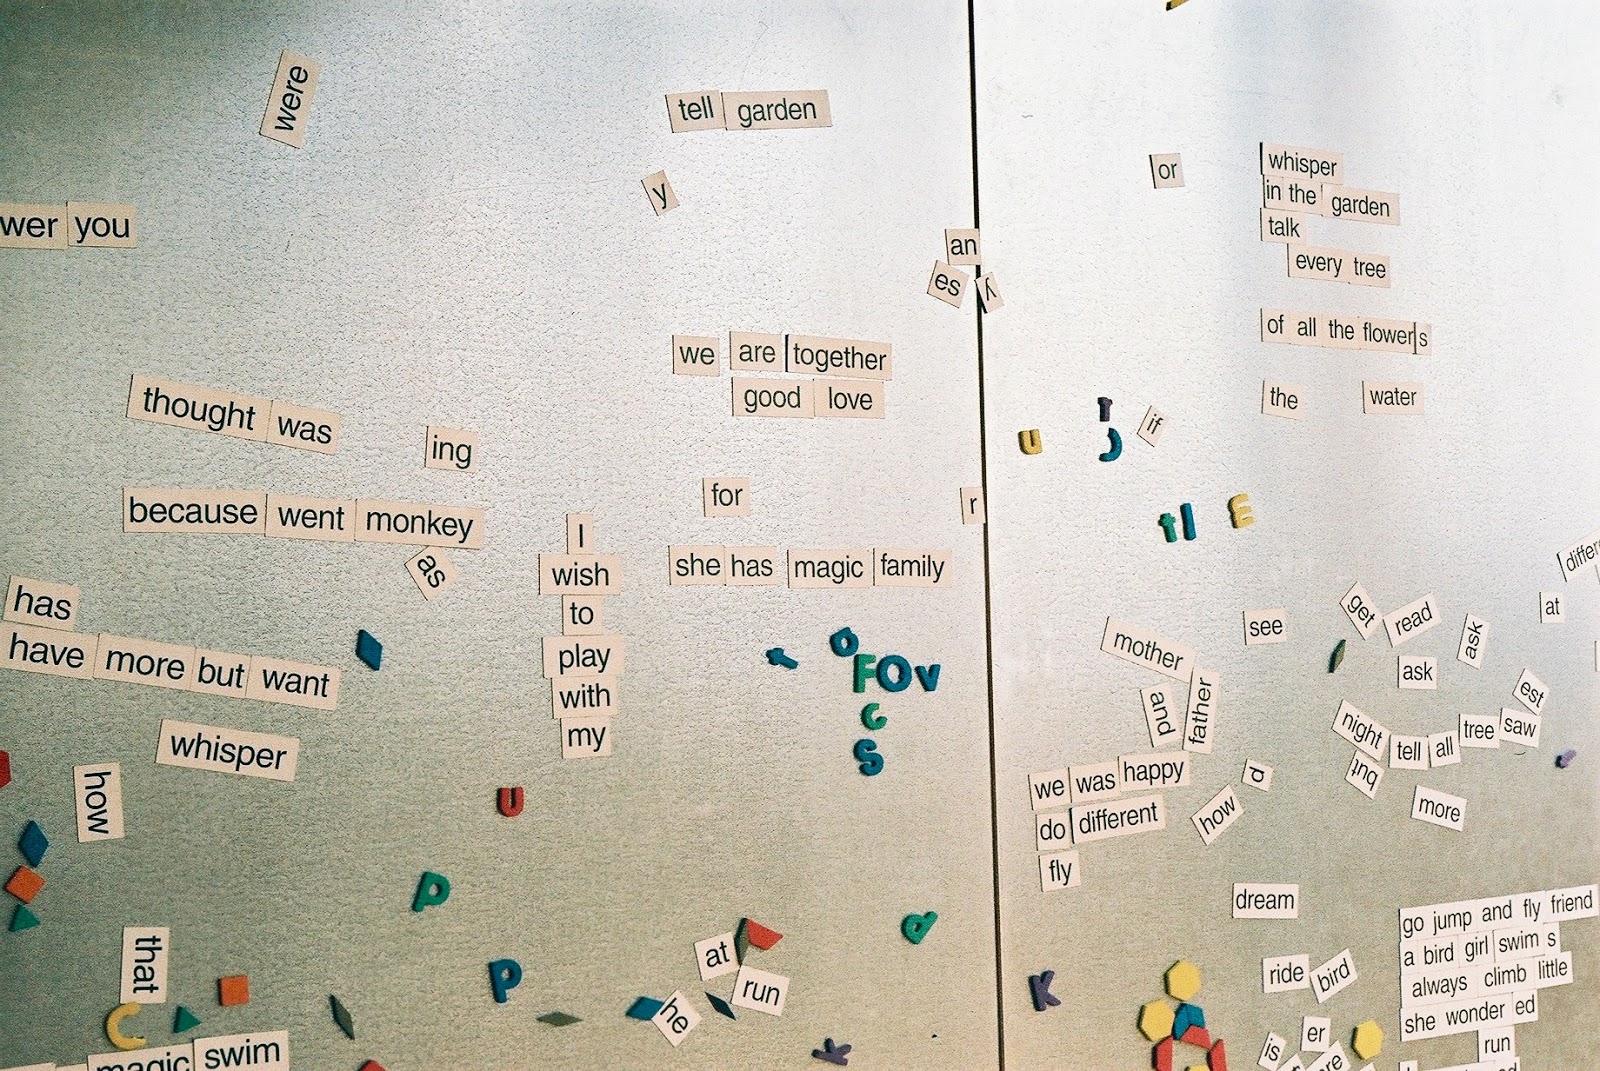 were
wer you
thought was
ing
because went monkey
as
has
have more but want
whisper
how
that
magic swim
I
wish
to
play
with
my
tell garden
y
an
es
y
we are together
good love
for
r
she has magic family
o
t
FOV
C
S
u
p
p
d
C
at
run
he
K
or
whisper
in the garden
talk
every tree
of all the flowers
the water
r
u
J
if
tl E
differ
at
get read ask
see
ask
est
mother
and
father
night tell all tree saw
but
more
we was happy
do different
fly
how
d
dream
ride bird
go jump and fly friend
a bird girl swim s
always climb little
she wonder ed
run
K
is
er
re